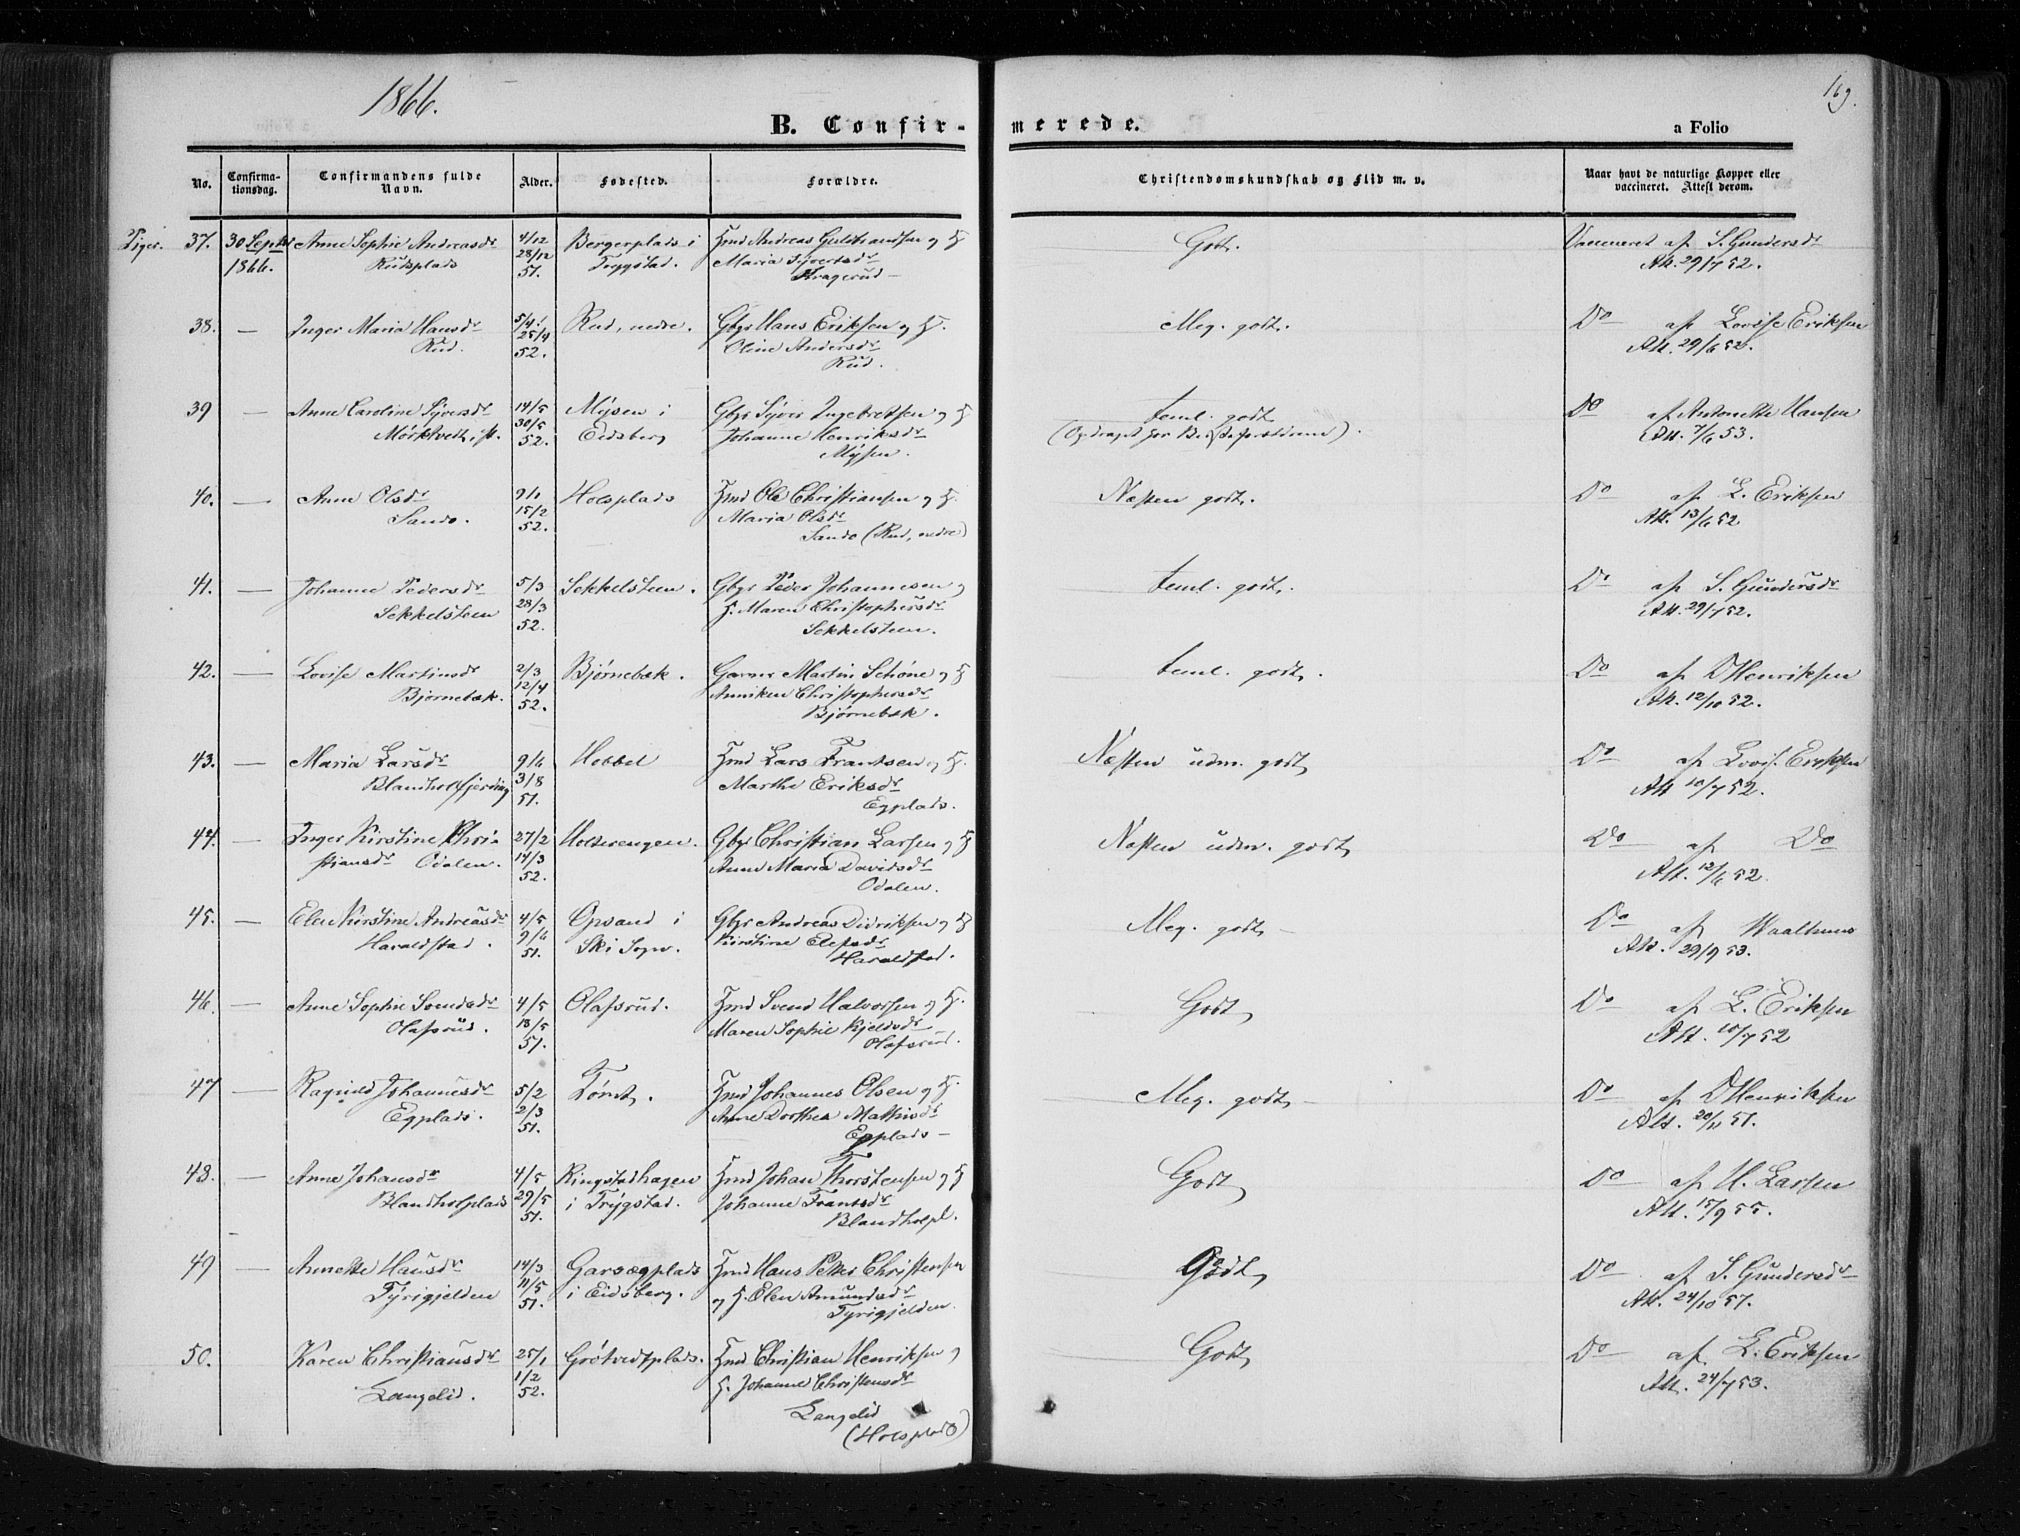 1866.
169.
B. Confirmerede.
a Folio
No.
Confirmationsdag.
Confirmandens fulde Navn.
Alder.
Fødested.
Forældre.
Christendomskundskab og Flid m. v.
Naar havt de naturlige Kopper eller
vaccineret. Attest derom.
Piger. 37. 30 Septbr 1866. Anne Sophie Andreasdr Rudsplads
4/12 28/12 51.
Bergerplads i Trygstad.
Hmd Andreas Gulbrandsen og H Maria Syversdr Kragerud
Godt.
Vaccineret af S. Gundersdr Att. 29/7 52.
38. — Inger Maria Hansdr Rud.
5/4 25/4 52.
Rud, nedre.
Gbgr Hans Eriksen og H. Oline Andersdr Rud.
Meg. godt.
Do af Lovise Eriksen Att. 29/6 52.
39 — Anne Caroline Syversdr Mørktvedt, st.
14/5 30/5 52.
Mysen i Eidsberg
Gbgr Syver Ingebretsen og H Johanne Henriksdr Mysen.
Teml. godt (Opdraget hos Bedsteforældrene).
Do af Antonette Hansen Att. 7/6 53.
40. — Anne Olsdr Sando.
9/1 15/2 52.
Holsplads
Hmd Ole Christiansen og H. Maria Olsdr Sando (Rud, nedre)
Næsten godt.
Do af L. Eriksen Att. 13/6 52
41. — Johanne Pedersdr Sekkelsteen
5/3 28/3 52.
Sekkelsteen.
Gbgr Peder Johannesen og H. Maren Christophersdr Sekkelsteen.
Teml. godt.
Do af S. Gundersdr Att. 29/7 52.
42. — Lovise Martinsdr Bjørnebæk.
2/3 12/4 52.
Bjørnebæk.
Garver Martin Schøne og H Anniken Christophersdr Bjørnebæk.
Teml. godt.
Do af D Henriksen Att. 12/10 52.
43. — Maria Larsdr Blandholfjerding
9/6 3/8 51.
Hobbel
Hmd Lars Frantsen og H. Marthe Eriksdr Egplads.
Næsten udm. godt
Do af Lovis. Eriksen Att 10/7 52.
44. — Inger Kirstine Christiansdr Odalen.
27/2 14/3 52.
Holserengen.
Gbgr Christian Larsen og H Anne Maria Davidsdr Odalen.
Næsten udm. godt
Do af Do Att. 12/6 52.
45. — Elen Kirstine Andreasdr Haraldstad.
4/5 9/6 51.
Opsand i Ski Sogn.
Gbgr Andreas Didriksen og H Kirstine Elefsdr Haraldstad.
Meg. godt
Do af Waalhuus Att. 29/9 53.
46. — Anne Sophie Svendsdr Olafsrud.
4/5 18/5 51.
Olafsrud.
Hmd Svend Halvorsen og H. Maren Sophie Kjeldsdr Olafsrud.
Godt
Do af L. Eriksen Att. 10/7 52
47 — Ragnild Johannesdr Egplads.
5/2 2/3 51.
Tømt.
Hmd Johannes Olsen og H. Anne Dorthea Mathisdr Egplads
Meg. godt
Do af D Henriksen Att. 20/11 51.
48. — Anne Johansdr Blandholplads
4/5 29/5 51.
Ringstadhagen i Trygstad.
Hmd Johan Thorstensen og H Johanne Frantsdr Blandholpl.
Godt
Do af H. Larsen Att. 15/9 55.
49 — Annette Hansdr Tyrigjelden
14/3 11/5 51.
Garsægplads i Eidsberg.
Hmd Hans Petter Christensen og H. Elen Amundsdr Tyrigjelden.
Godt
Do af S. Gundersdr Att. 24/10 57.
50. Karen Christiansdr Langelid.
25/1 1/2 52.
Grøtvedtplads.
Hmd Christian Henriksen og H. Johanne Christensdr Langelid (Holsplads)
Godt
Do af L. Eriksen Att. 24/7 53.